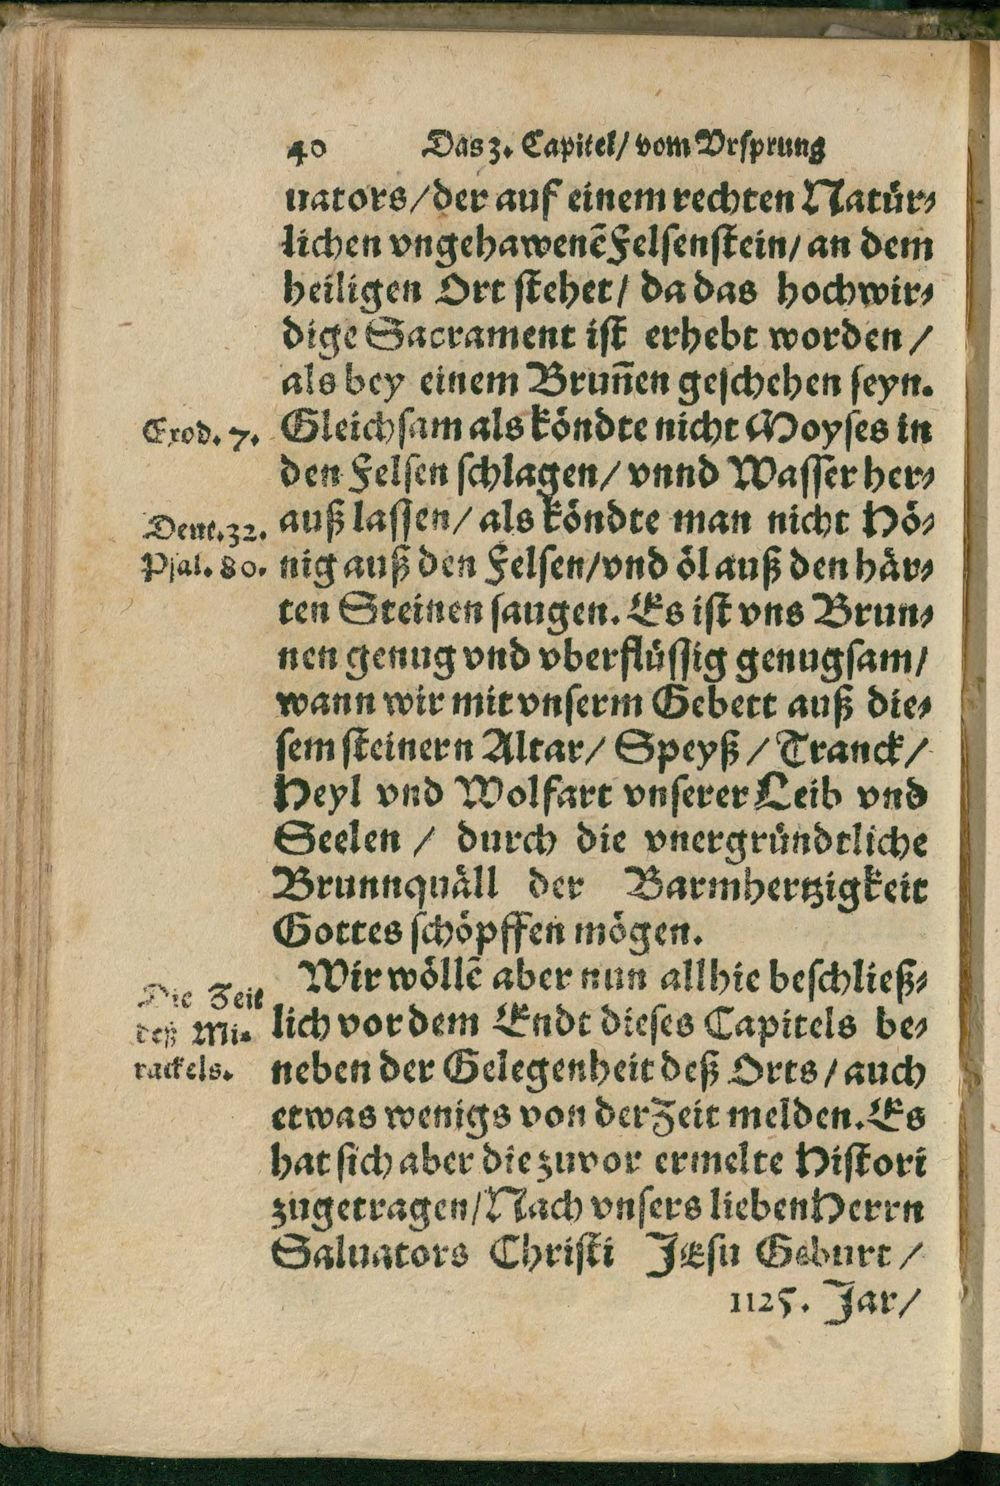 40 Das 3. Capitel/ vom Vrsprung
uators/ der auf einem rechten Natür⸗
lichen vngehawenẽ Felsenstein/ an dem
heiligen Ort stehet/ da das hochwir⸗
dige Sacrament ist erhebt worden /
als bey einem Brun̄en geschehen seyn.
Exod. 7. Gleichsam als köndte nicht Moyses in
den Felsen schlagen/ vnnd Wasser her⸗
Deut. 32. auß lassen/ als köndte man nicht Hö⸗
Psal. 80. nig auß den Felsen/ vnd öl auß den här⸗
ten Steinen saugen. Es ist vns Brun⸗
nen genug vnd vberflüssig genugsam/
wann wir mit vnserm Gebett auß die⸗
sem steinern Altar/ Speyß / Tranck/
Heyl vnd Wolfart vnserer Leib vnd
Seelen / durch die vnergründtliche
Brunnquäll der Barmhertzigkeit
Gottes schöpffen mögen.
Wir wöllẽ aber nun allhie beschließ⸗
Die Zeit
deß Mi⸗
rackels.
lich vor dem Endt dieses Capitels be⸗
neben der Gelegenheit deß Orts/ auch
etwas wenigs von der Zeit melden. Es
hat sich aber die zuvor ermelte Histori
zugetragen/ Nach vnsers lieben Herrn
Saluators Christi JEsu Geburt /
1125. Jar/